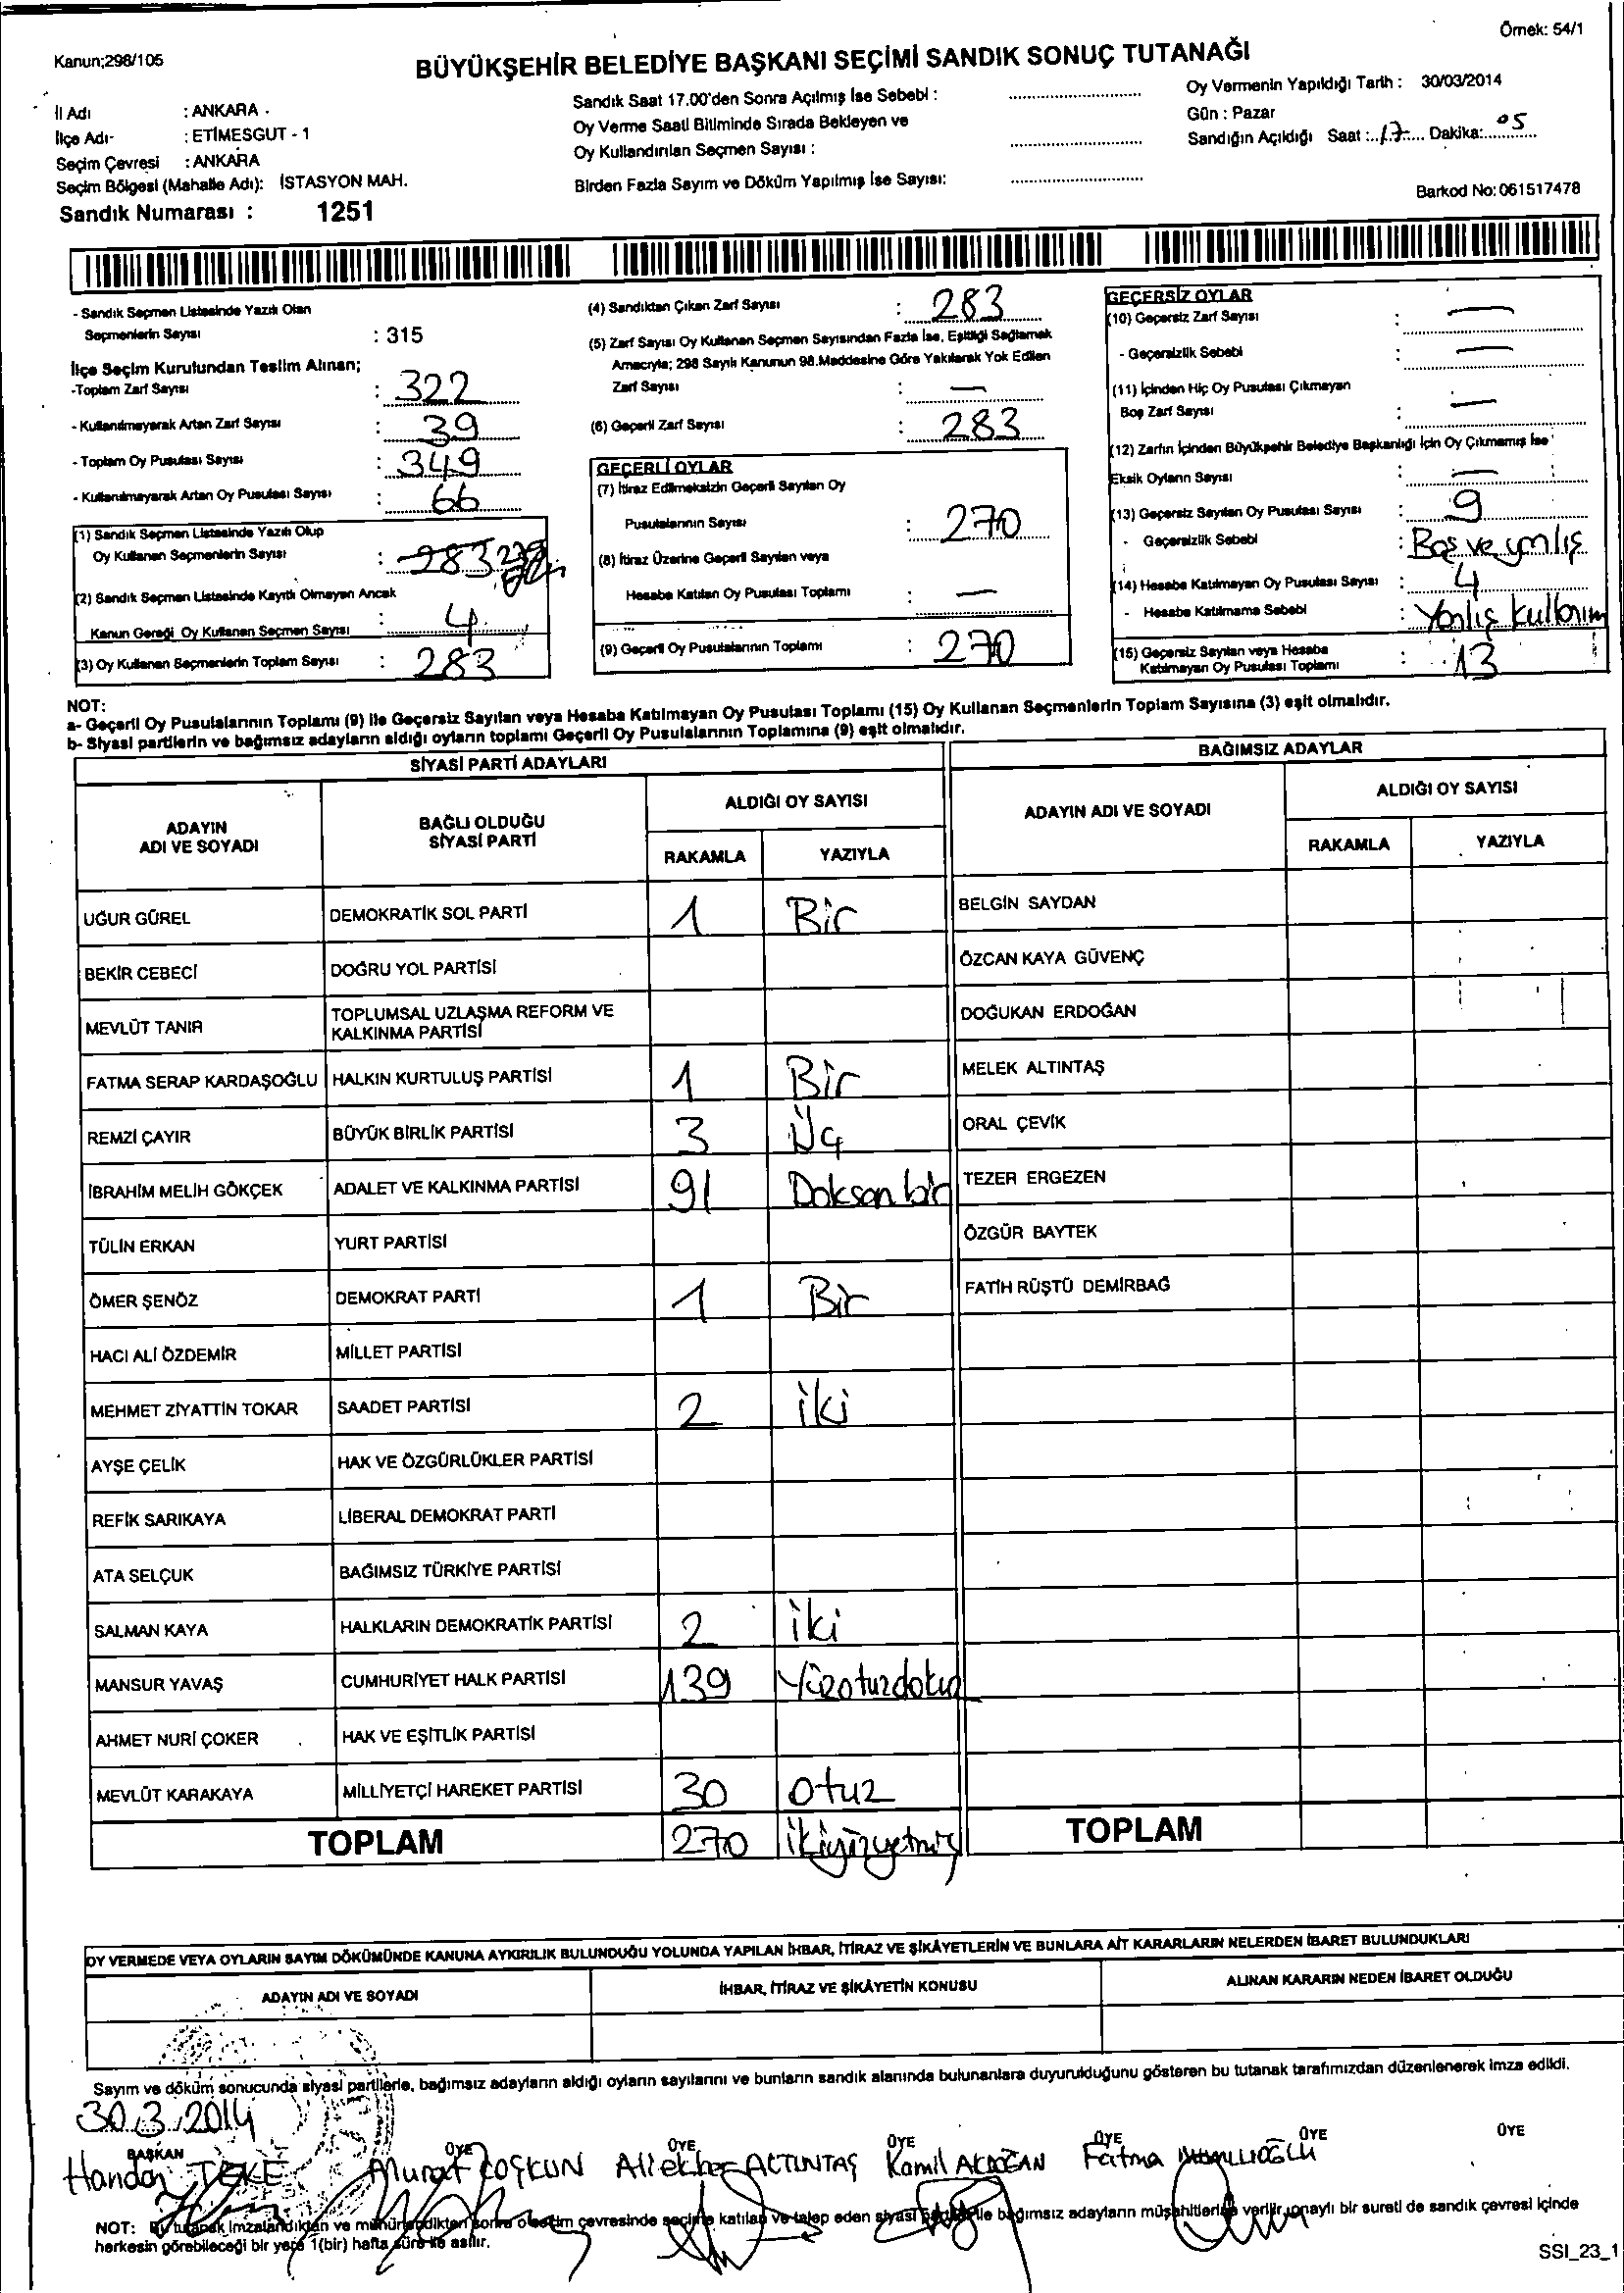 Örnek: 54/1
Kanun;298/105
BÜYÜKŞEHİR BELEDİYE BAŞKANI SEÇİMİ SANDIK SONUÇ TUTANAĞI
İl Adı : ANKARA
İlçe Adı : ETİMESGUT - 1
Seçim Çevresi : ANKARA
Seçim Bölgesi (Mahalle Adı): İSTASYON MAH.
Sandık Numarası : 1251
Sandık Saat 17.00'den Sonra Açılmış İse Sebebi :
Oy Verme Saati Bitiminde Sırada Bekleyen ve
Oy Kullandırılan Seçmen Sayısı :
Birden Fazla Sayım ve Döküm Yapılmış İse Sayısı:
Oy Vermenin Yapıldığı Tarih : 30/03/2014
Gün : Pazar
Sandığın Açıldığı Saat : 17 Dakika: 05
Barkod No: 061517478
- Sandık Seçmen Listesinde Yazılı Olan
Seçmenlerin Sayısı : 315
İlçe Seçim Kurulundan Teslim Alınan;
-Toplam Zarf Sayısı : 322
- Kullanılmayarak Artan Zarf Sayısı : 39
- Toplam Oy Pusulası Sayısı : 349
- Kullanılmayarak Artan Oy Pusulası Sayısı : 66
(1) Sandık Seçmen Listesinde Yazılı Olup
Oy Kullanan Seçmenlerin Sayısı : 283 279
(2) Sandık Seçmen Listesinde Kayıtlı Olmayan Ancak
Kanun Gereği Oy Kullanan Seçmen Sayısı : 4
(3) Oy Kullanan Seçmenlerin Toplam Sayısı : 283
(4) Sandıktan Çıkan Zarf Sayısı : 283
(5) Zarf Sayısı Oy Kullanan Seçmen Sayısından Fazla İse, Eşitliği Sağlamak
Amacıyla; 298 Sayılı Kanunun 98.Maddesine Göre Yakılarak Yok Edilen
Zarf Sayısı : —
(6) Geçerli Zarf Sayısı : 283
GEÇERLİ OYLAR
(7) İtiraz Edilmeksizin Geçerli Sayılan Oy
Pusulalarının Sayısı : 270
(8) İtiraz Üzerine Geçerli Sayılan veya
Hesaba Katılan Oy Pusulası Toplamı : —
(9) Geçerli Oy Pusulalarının Toplamı : 270
GEÇERSİZ OYLAR
(10) Geçersiz Zarf Sayısı : —
- Geçersizlik Sebebi : —
(11) İçinden Hiç Oy Pusulası Çıkmayan
Boş Zarf Sayısı : —
(12) Zarfın İçinden Büyükşehir Belediye Başkanlığı İçin Oy Çıkmamış İse
Eksik Oyların Sayısı : —
(13) Geçersiz Sayılan Oy Pusulası Sayısı : 9
- Geçersizlik Sebebi : Boş ve yanlış
(14) Hesaba Katılmayan Oy Pusulası Sayısı : 4
- Hesaba Katılmama Sebebi : Yanlış kullanım
(15) Geçersiz Sayılan veya Hesaba
Katılmayan Oy Pusulası Toplamı : 13
NOT:
a- Geçerli Oy Pusulalarının Toplamı (9) ile Geçersiz Sayılan veya Hesaba Katılmayan Oy Pusulası Toplamı (15) Oy Kullanan Seçmenlerin Toplam Sayısına (3) eşit olmalıdır.
b- Siyasi partilerin ve bağımsız adayların aldığı oyların toplamı Geçerli Oy Pusulalarının Toplamına (9) eşit olmalıdır.
SİYASİ PARTİ ADAYLARI BAĞIMSIZ ADAYLAR
ADAYIN ADI VE SOYADI BAĞLI OLDUĞU SİYASİ PARTİ ALDIĞI OY SAYISI ADAYIN ADI VE SOYADI ALDIĞI OY SAYISI
RAKAMLA YAZIYLA RAKAMLA YAZIYLA
UĞUR GÜREL DEMOKRATİK SOL PARTİ 1 Bir BELGİN SAYDAN
BEKİR CEBECİ DOĞRU YOL PARTİSİ ÖZCAN KAYA GÜVENÇ
MEVLÜT TANIR TOPLUMSAL UZLAŞMA REFORM VE KALKINMA PARTİSİ DOĞUKAN ERDOĞAN
FATMA SERAP KARDAŞOĞLU HALKIN KURTULUŞ PARTİSİ 1 Bir MELEK ALTINTAŞ
REMZİ ÇAYIR BÜYÜK BİRLİK PARTİSİ 3 Üç ORAL ÇEVİK
İBRAHİM MELİH GÖKÇEK ADALET VE KALKINMA PARTİSİ 91 Doksan bir TEZER ERGEZEN
TÜLİN ERKAN YURT PARTİSİ ÖZGÜR BAYTEK
ÖMER ŞENÖZ DEMOKRAT PARTİ 1 Bir FATİH RÜŞTÜ DEMİRBAĞ
HACI ALİ ÖZDEMİR MİLLET PARTİSİ
MEHMET ZİYATTİN TOKAR SAADET PARTİSİ 2 iki
AYŞE ÇELİK HAK VE ÖZGÜRLÜKLER PARTİSİ
REFİK SARIKAYA LİBERAL DEMOKRAT PARTİ
ATA SELÇUK BAĞIMSIZ TÜRKİYE PARTİSİ
SALMAN KAYA HALKLARIN DEMOKRATİK PARTİSİ 2 iki
MANSUR YAVAŞ CUMHURİYET HALK PARTİSİ 139 Yüzotuzdokuz
AHMET NURİ ÇOKER HAK VE EŞİTLİK PARTİSİ
MEVLÜT KARAKAYA MİLLİYETÇİ HAREKET PARTİSİ 30 otuz
TOPLAM 270 ikiyüzyetmiş TOPLAM
OY VERMEDE VEYA OYLARIN SAYIM DÖKÜMÜNDE KANUNA AYKIRILIK BULUNDUĞU YOLUNDA YAPILAN İHBAR, İTİRAZ VE ŞİKÂYETLERİN VE BUNLARA AİT KARARLARIN NELERDEN İBARET BULUNDUKLARI
ADAYIN ADI VE SOYADI İHBAR, İTİRAZ VE ŞİKÂYETİN KONUSU ALINAN KARARIN NEDEN İBARET OLDUĞU
Sayım ve döküm sonucunda siyasi partilerle, bağımsız adayların aldığı oyların sayılarını ve bunların sandık alanında bulunanlara duyurulduğunu gösteren bu tutanak tarafımızdan düzenlenerek imza edildi.
30.3.2014
BAŞKAN ÜYE ÜYE ÜYE ÜYE ÜYE ÜYE
Handan TEKE Murat COŞKUN Aliekber ALTUNTAŞ Kamil AKDOĞAN Fatma
NOT: Bu tutanak imzalandıktan ve mühürlendikten sonra o seçim çevresinde seçime katılan ve talep eden siyasi partiler ile bağımsız adayların müşahitlerine verilir, onaylı bir sureti de sandık çevresi içinde
herkesin görebileceği bir yere 1(bir) hafta süre ile asılır.
SSI_23_1